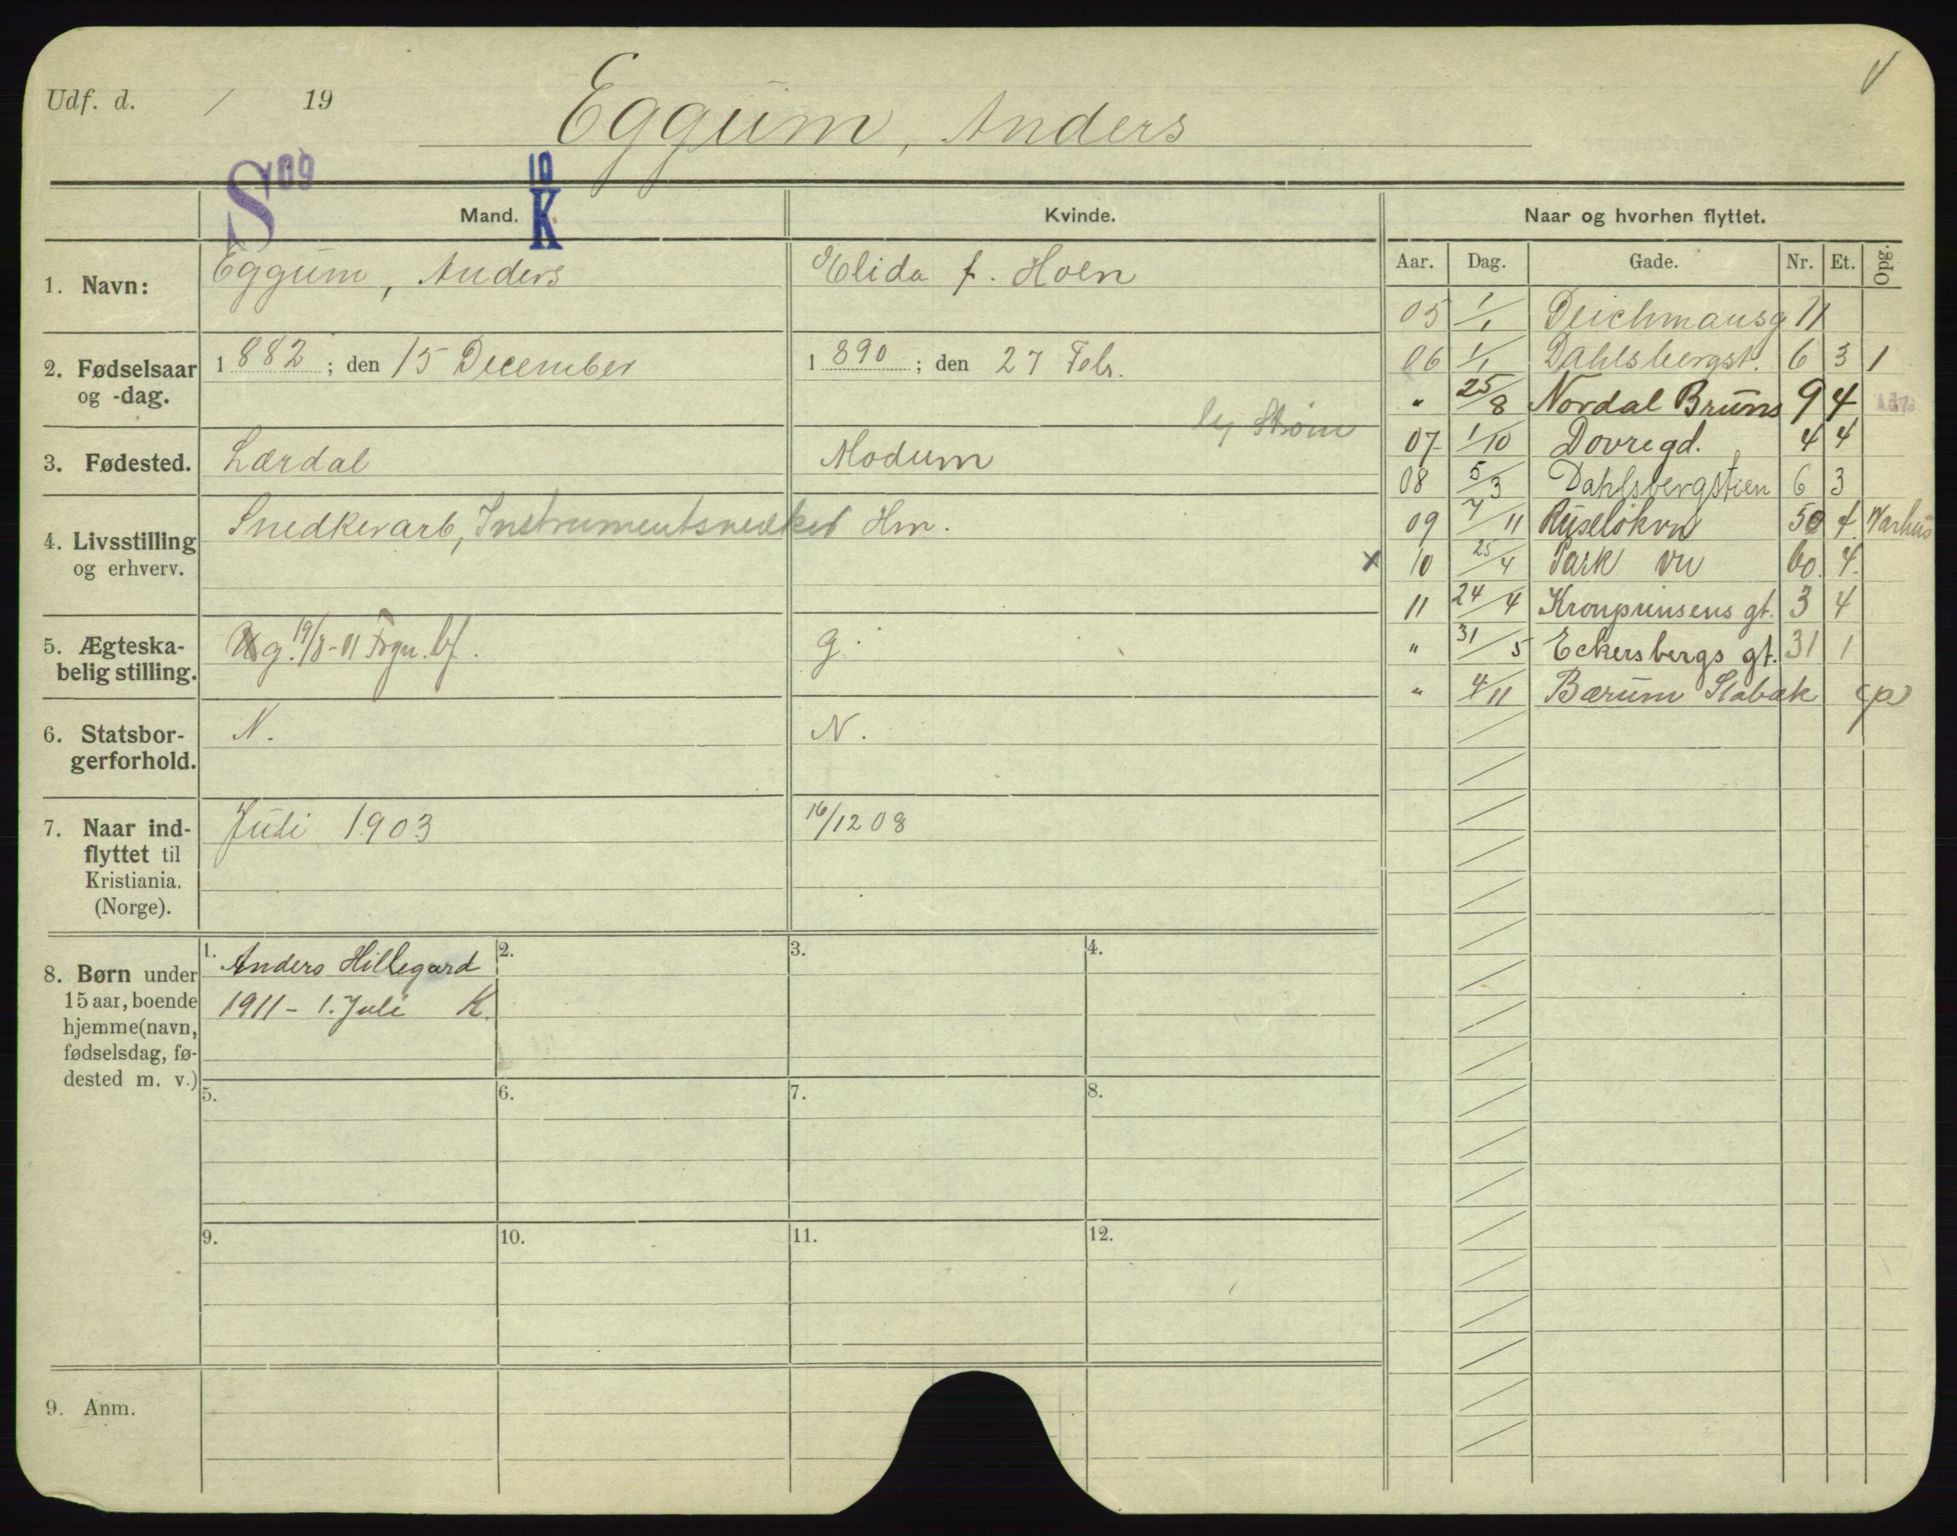 Udf. d. / 19
Eggum, Anders
S 09
10 K
Mand. Kvinde. Naar og hvorhen flyttet.
Aar. Dag. Gade. Nr. Et. Opg.
1. Navn: Eggum, Anders Elida f. Hoen
2. Fødselsaar og -dag. 1882; den 15 December 1890; den 27 Febr.
3. Fødested. Lærdal Modum
Strøm
4. Livsstilling og erhverv. Snedkerarb, Instrumentsnedker Hm.
5. Ægteska-
belig stilling. g. 19/8-11 Frgn. g.
6. Statsbor-
gerforhold. N. N.
7. Naar ind-
flyttet til
Kristiania.
(Norge). Juli 1903 16/12 08
8. Børn under
15 aar, boende
hjemme (navn,
fødselsdag, fø-
dested m. v.)
1. Anders Hillegard
1911 - 1. Juli K.
2.
3.
4.
5.
6.
7.
8.
9.
10.
11.
12.
9. Anm.
05 1/1 Deichmansg 11
06 1/1 Dahlsbergst. 6 3 1
" 25/8 Nordal Bruns 9 4
07 1/10 Dovregd. 4 4
08 5/3 Dahlsbergstien 6 3
09 7/11 Ruseløkvn 50 4
x 10 25/4 Park vn 60. 4.
11 24/4 Kronprinsens gt. 3 4
" 31/5 Eckersbergs gt. 31 1
" 4/11 Bærum Stabæk (p)